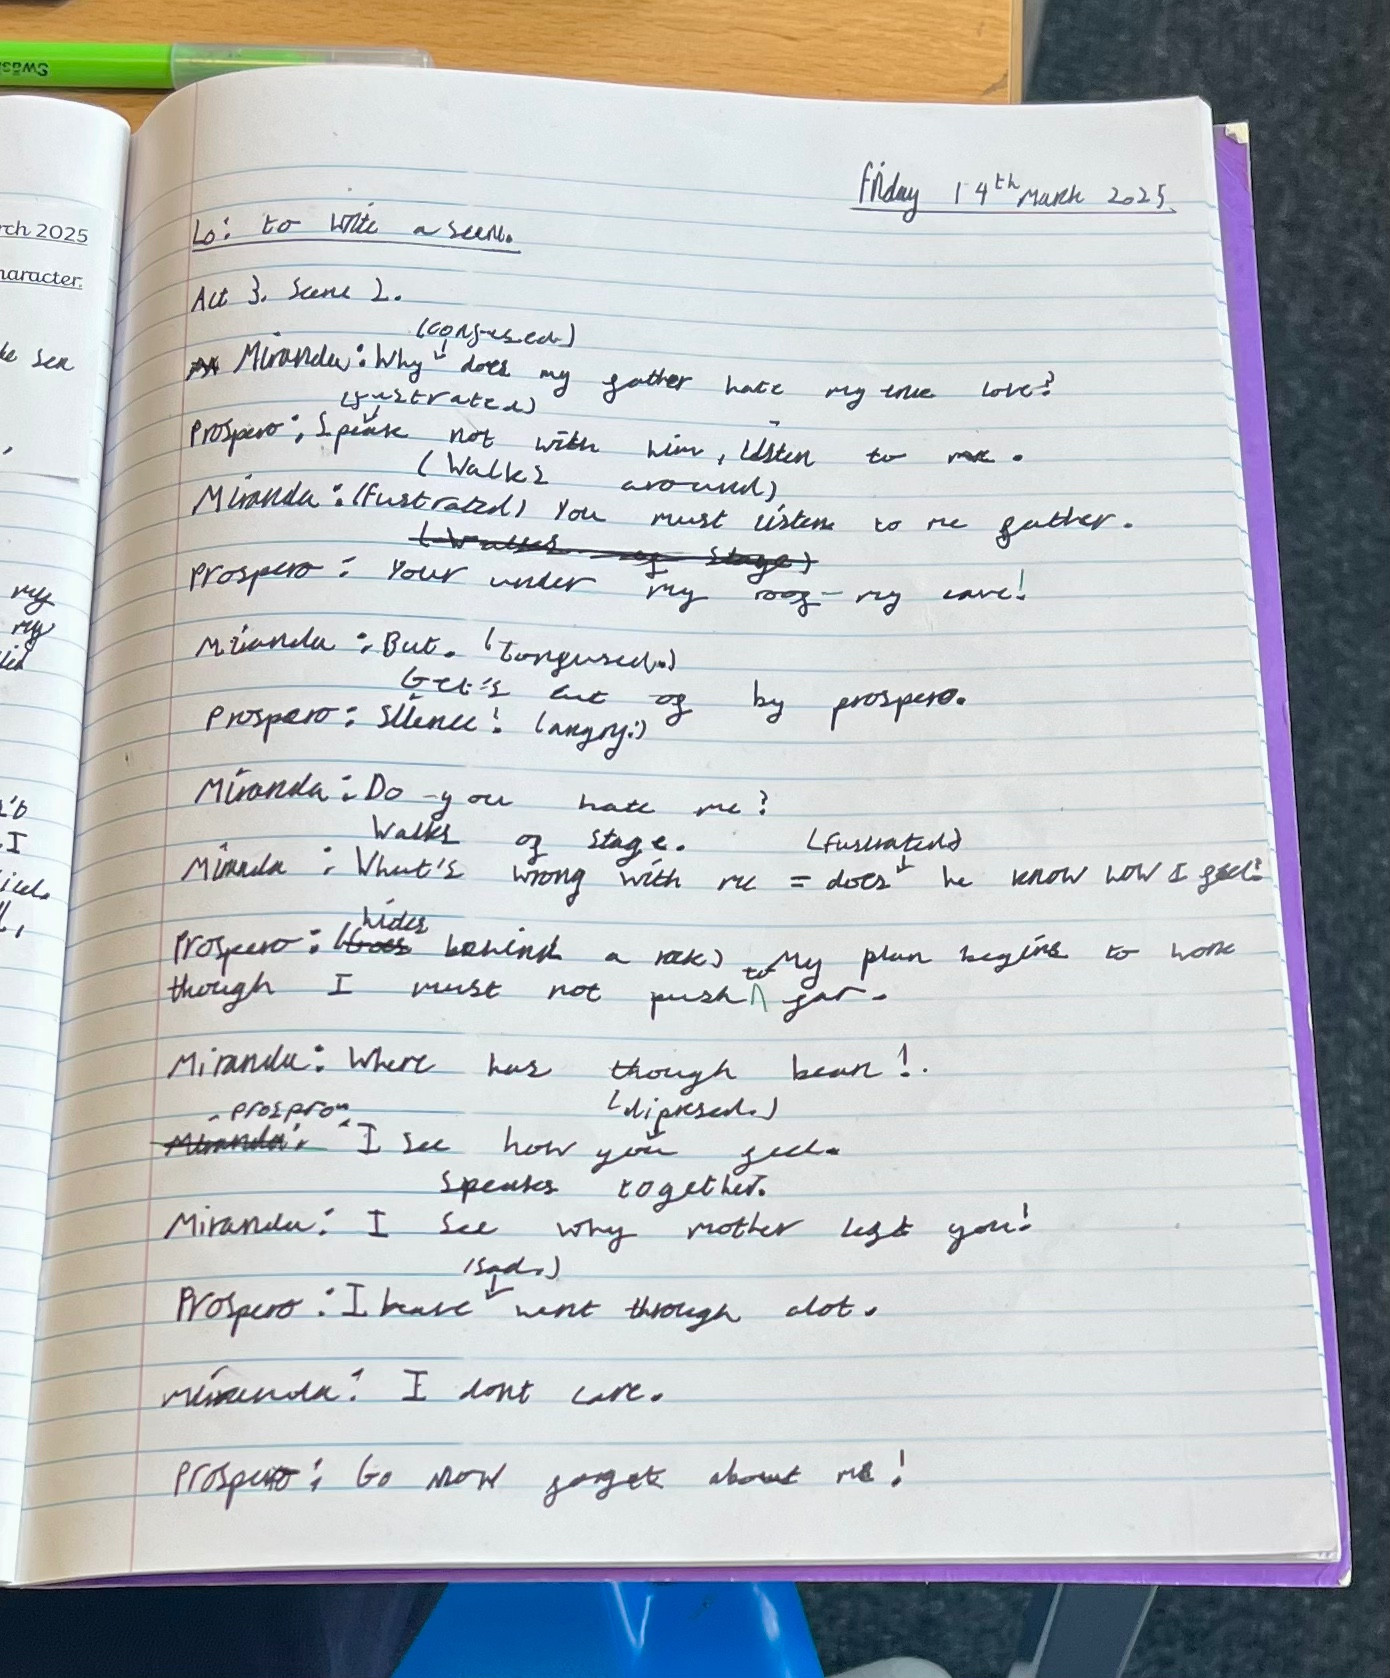 Swäsh
rch 2025
haracter.
sea
my
my
I
Friday 14th March 2025.
Lo: to write a scene.
Act 3. Scene 2.
(confused.)
Miranda: Why does my father hate my true love?
(fustrated)
Prospero: Speak not with him, Listen to me.
(Walks around)
Miranda: (Fustrated) You must listen to me father.
(Walks of stage)
Prospero: Your under my roof - my care!
Miranda: But. (Confused.)
Get's cut of by prospero.
Prospero: Silence! (angry.)
Miranda: Do you hate me?
Walks of stage. (Fustrated)
Miranda: What's wrong with me = does he know how I feel?
hides
Prospero: (Goes behind a rock) My plan begins to work
to
though I must not push far.
Miranda: Where has though bean!.
prospro (dipresed.)
Miranda: I see how you feel.
Speaks together.
Miranda: I see why mother left you!
(sad.)
Prospero: I have went through alot.
Miranda: I dont care.
Prospero: Go now forget about me!